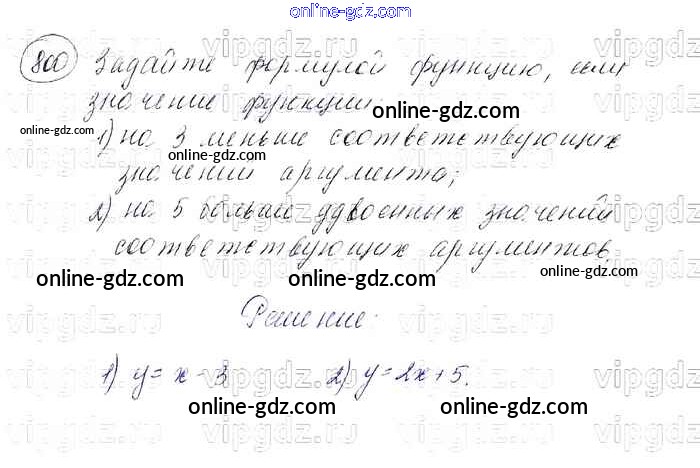 online-gdz.com
800 Задайте формулой функцию, если
значение функции
online-gdz.com
online-gdz.com
1) на 3 меньше соответствующих
online-gdz.com
значений аргумента;
2) на 5 больше удвоенных значений
соответствующих аргументов.
online-gdz.com online-gdz.com online-gdz.com
Решение:
1) y = x - 3 2) y = 2x + 5.
online-gdz.com online-gdz.com
vipgdz